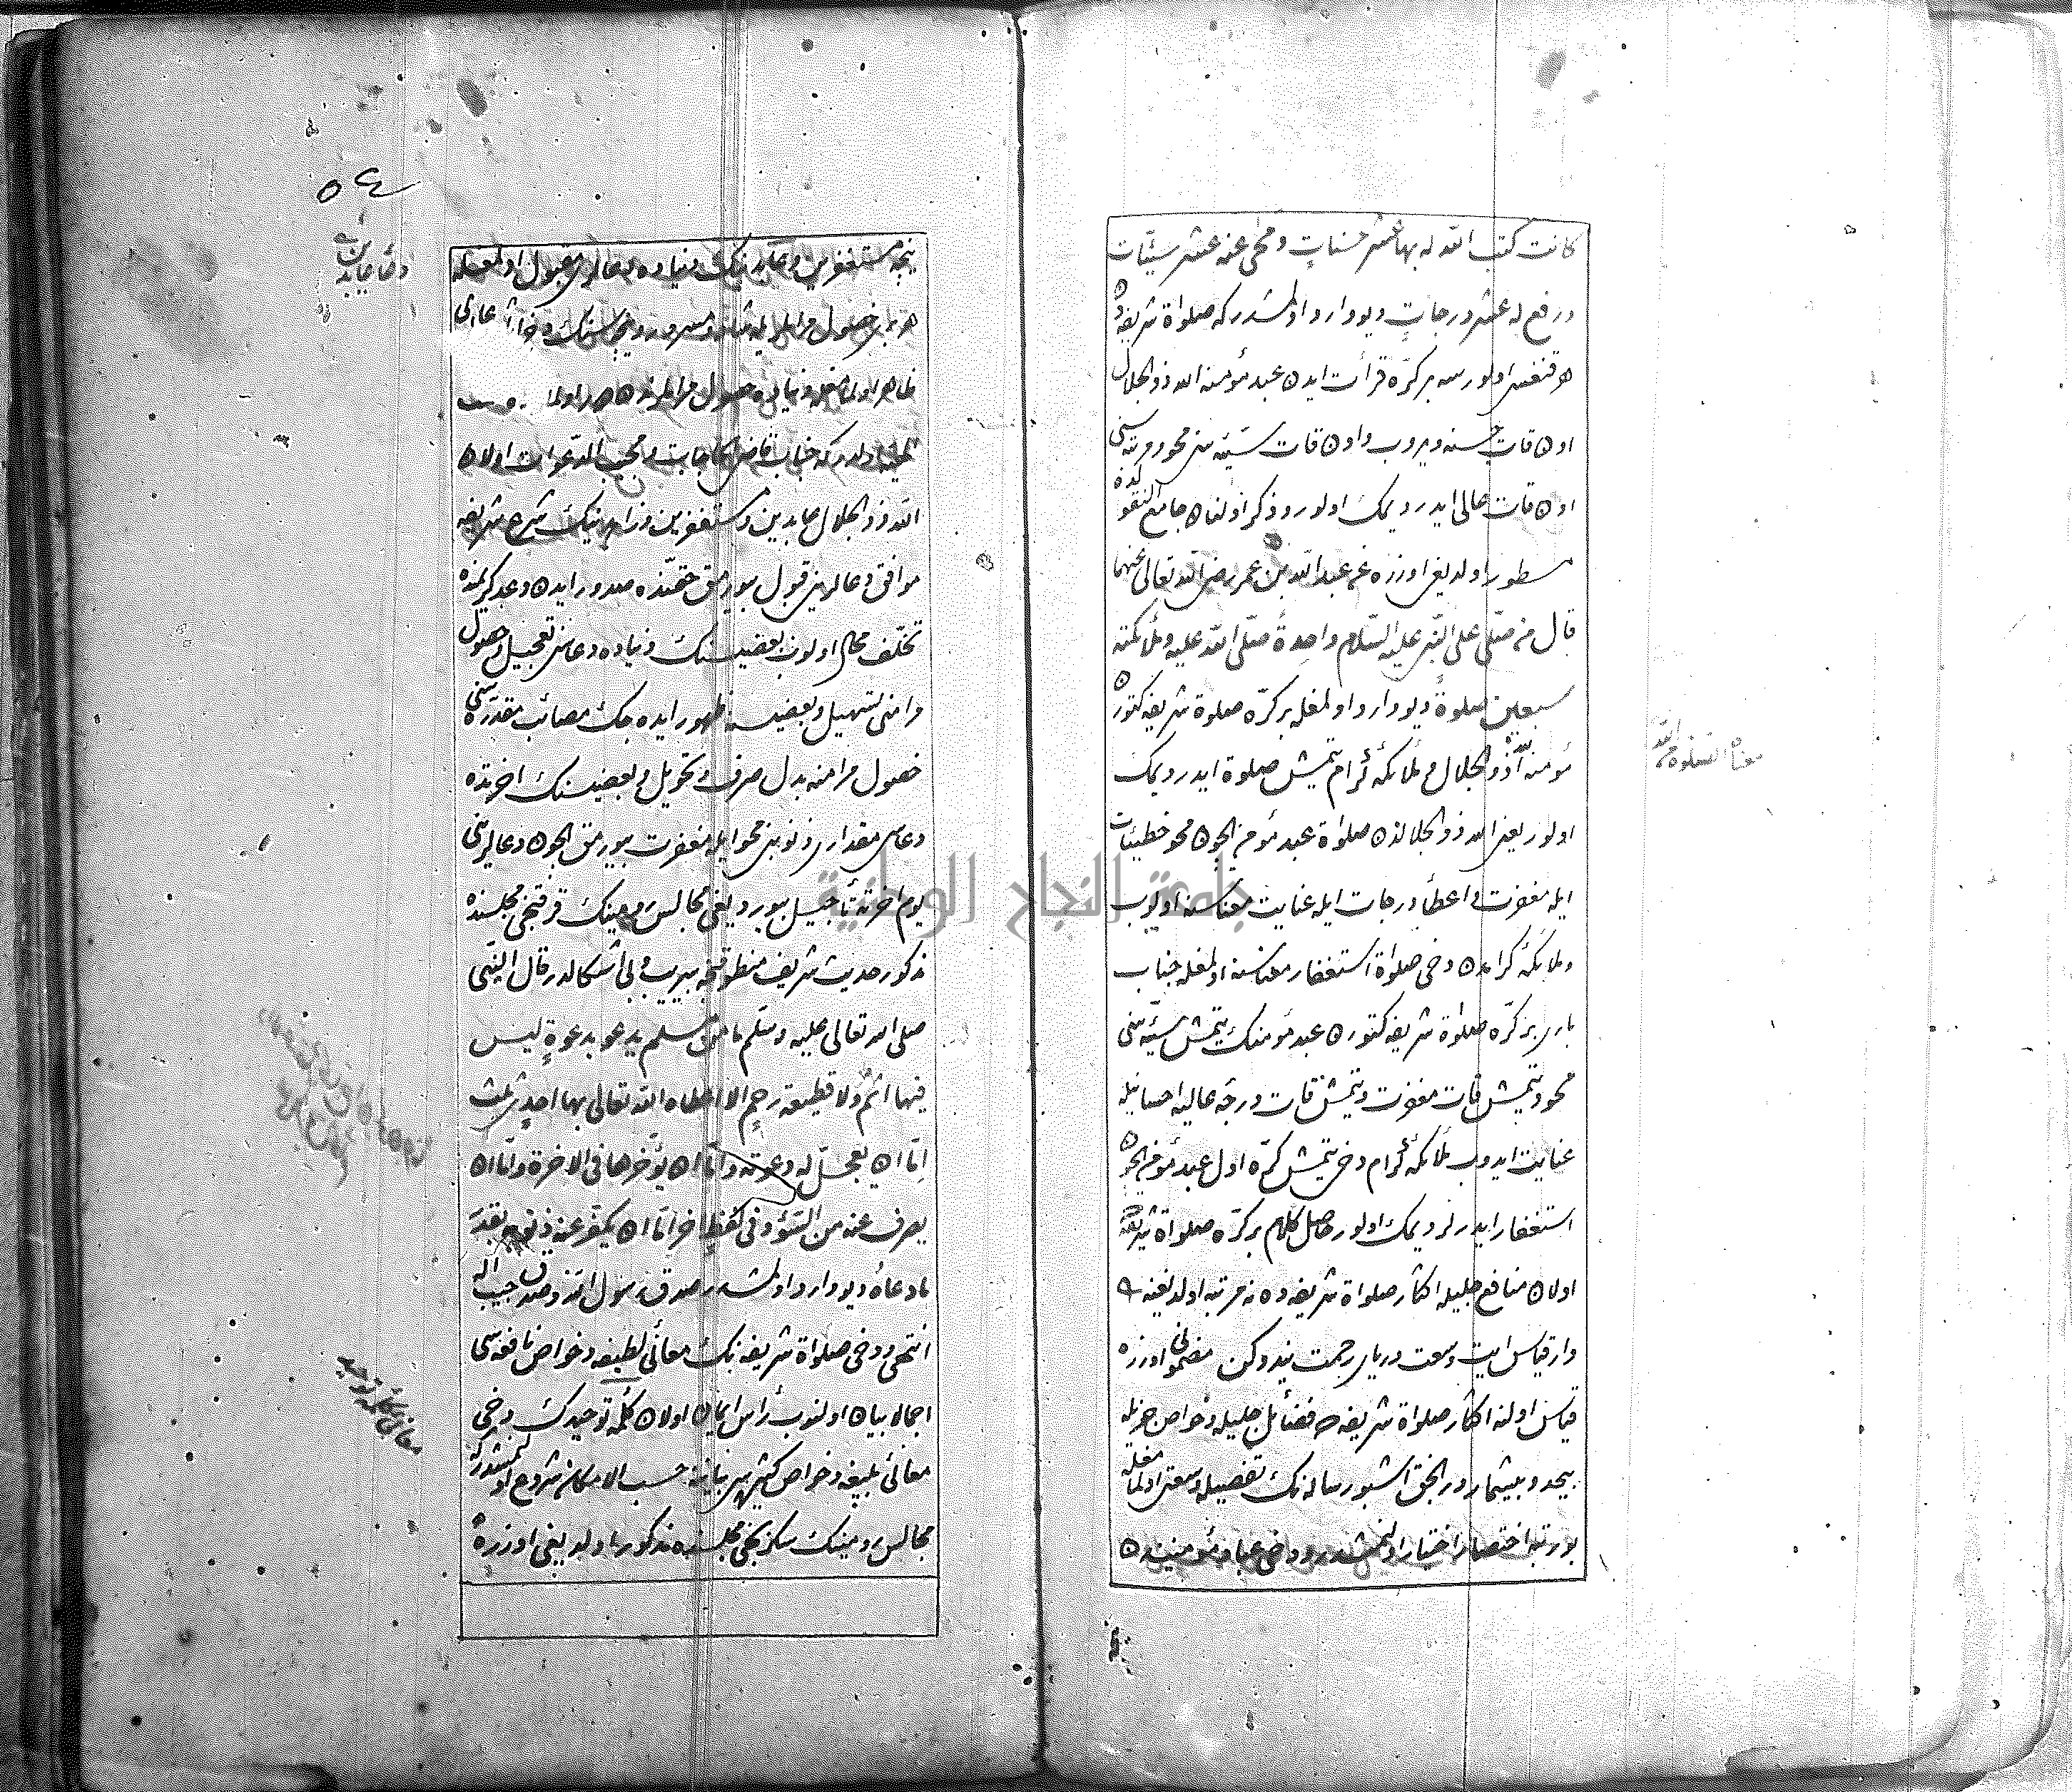 كانت كتب الله له بها عشر حسنات ومحى عنه عشر سيئات
ورفع له عشر درجات ديو وارد اولمشدر كه صلواة شريفه
هر قنغسى اولورسه بر كره قرأت ايدن عبد مؤمنه الله ذو الجلال
اون قات حسنه ويروب واون قات سيئه سن محو ومرتبه سنى
اون قات عالى ايدر ديمك اولور وذكر اولنان جامع
مسطور اولديغى اوزره عن عبد الله بن عمر رضى الله تعالى عنهما
قال من صلى على النبى عليه السلام واحدة صلى الله عليه وملائكته
سبعين صلوة ديو وارد اولمغله بر كره صلوة شريفه كتورن
مؤمنه الله ذو الجلال وملائكه كرام يتمش صلوة ايدر ديمك
اولور يعنى الله ذو الجلالدن صلواة عبد مؤمن ايچون محو خطيئات
ايله مغفرت واعطأ درجات ايله عنايت معناسنه اولوب
وملائكه كرامدن دخى صلواة استغفار معناسنه اولمغله جناب
بارى بر كره صلواة شريفه كتورن عبد مؤمنك يتمش سيئه سنى
محو ويتمش قات مغفرت ويتمش قات درجه عاليه احسانيله
عنايت ايدوب ملائكه كرام دخى يتمش كره اول عبد مؤمن ايچون
استغفار ايدرلر ديمك اولور حاصل كلام بر كره صلواة شريفه
اولان منافع جليله اكثار صلواة شريفه ده نه مرتبه اولديغنه
وار قياس ايت وسعت درياى رحمت نيدوكن مضمونى اوزره
قياس اولنه اكثار صلواة شريفه فضائل جليله وخواص جزيله
بيحد وبيشمار در انجق اشبو رساله نك تفصيله وسعتى اولمامغله
بو رتبه اختصار اختيار اولنمشدر ودخى عباد مؤمنيندن
معناء الصلوة من الله
٥٤
دعاء عابدين
نيجه مستغفرين دنياده دعالرى مقبول اولمغله
هر بار حصول مراملريله
ظاهر اولمامغله دنياده حصول مراملرندن
جناب قاضى الحاجات ومجيب الدعوات اولان
الله ذو الجلال عابدين ومستغفرين وزاهدينك شرع شريفه
موافق دعالرينى قبول بيورمق حقنده صدور ايدن وعد كريمنده
تخلف محال اولوب بعضيسنك دنياده دعاسن تعجيل وحصول
مرامنى تسهيل وبعضيسنه ظهور ايده جك مصائب مقدره سنى
حصول مرامنه بدل صرف وتحويل وبعضيسنك اخرتده
دعاسى مقدارى ذنوبنى محو ايله مغفرت بيورمق ايچون دعالرينى
يوم اخرته تأجيل بيورديغى مجالس رومينك قرقنجى مجلسنده
مذكور حديث شريف منطوقنجه بى ريب وبى اشكالدر قال النبى
صلى الله تعالى عليه وسلم ما من مسلم يدعو بدعوة ليس
فيها اثم ولا قطيعة رحم الا اعطاه الله تعالى بها احدى ثلث
اما ان يعجل له دعوته واما ان يؤخرها فى الاخرة واما ان
يصرف عنه من السوء وفى لفظ اخر اما ان يكفر عنه ذنوبه بقدر
ما دعاه ديو وارد اولمشدر صدق رسول الله وصدق حبيب الله
انتهى ودخى صلواة شريفه نك معانى لطيفه وخواص نافعه سى
اجمالا بيان اولنوب رأس ايمان اولان كلمه توحيدك دخى
معانئ بليغه وخواص كثيره سى بياننه حسب الامكان شروع اولنمشدركه
مجالس رومينك سكزنجى مجلسنده مذكور اولديغى اوزره
معانئ كلمه توحيد
جامعة النجاح الوطنية